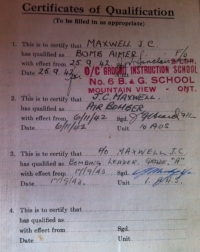 Certificates of Qualification
(To be filled in as appropriate)
1. This is to certify that MAXWELL J.C.
has qualified as BOMB AIMER
with effect from 25.9.42
Date 25.9.42 O/C GROUND INSTRUCTION SCHOOL
No. 6 B. & G. SCHOOL
MOUNTAIN VIEW - ONT.
2. This is to certify that J.C. MAXWELL
has qualified as AIR BOMBER
with effect from 6/11/42 Sgd.
Date 6/11/42 Unit 10 AOS
3. This is to certify that MAXWELL J.C.
has qualified as BOMBING LEADER. GRADE "A"
with effect from 17/9/43 Sgd.
Date 17/9/43. Unit
4. This is to certify that
has qualified as
with effect from Sgd.
Date Unit